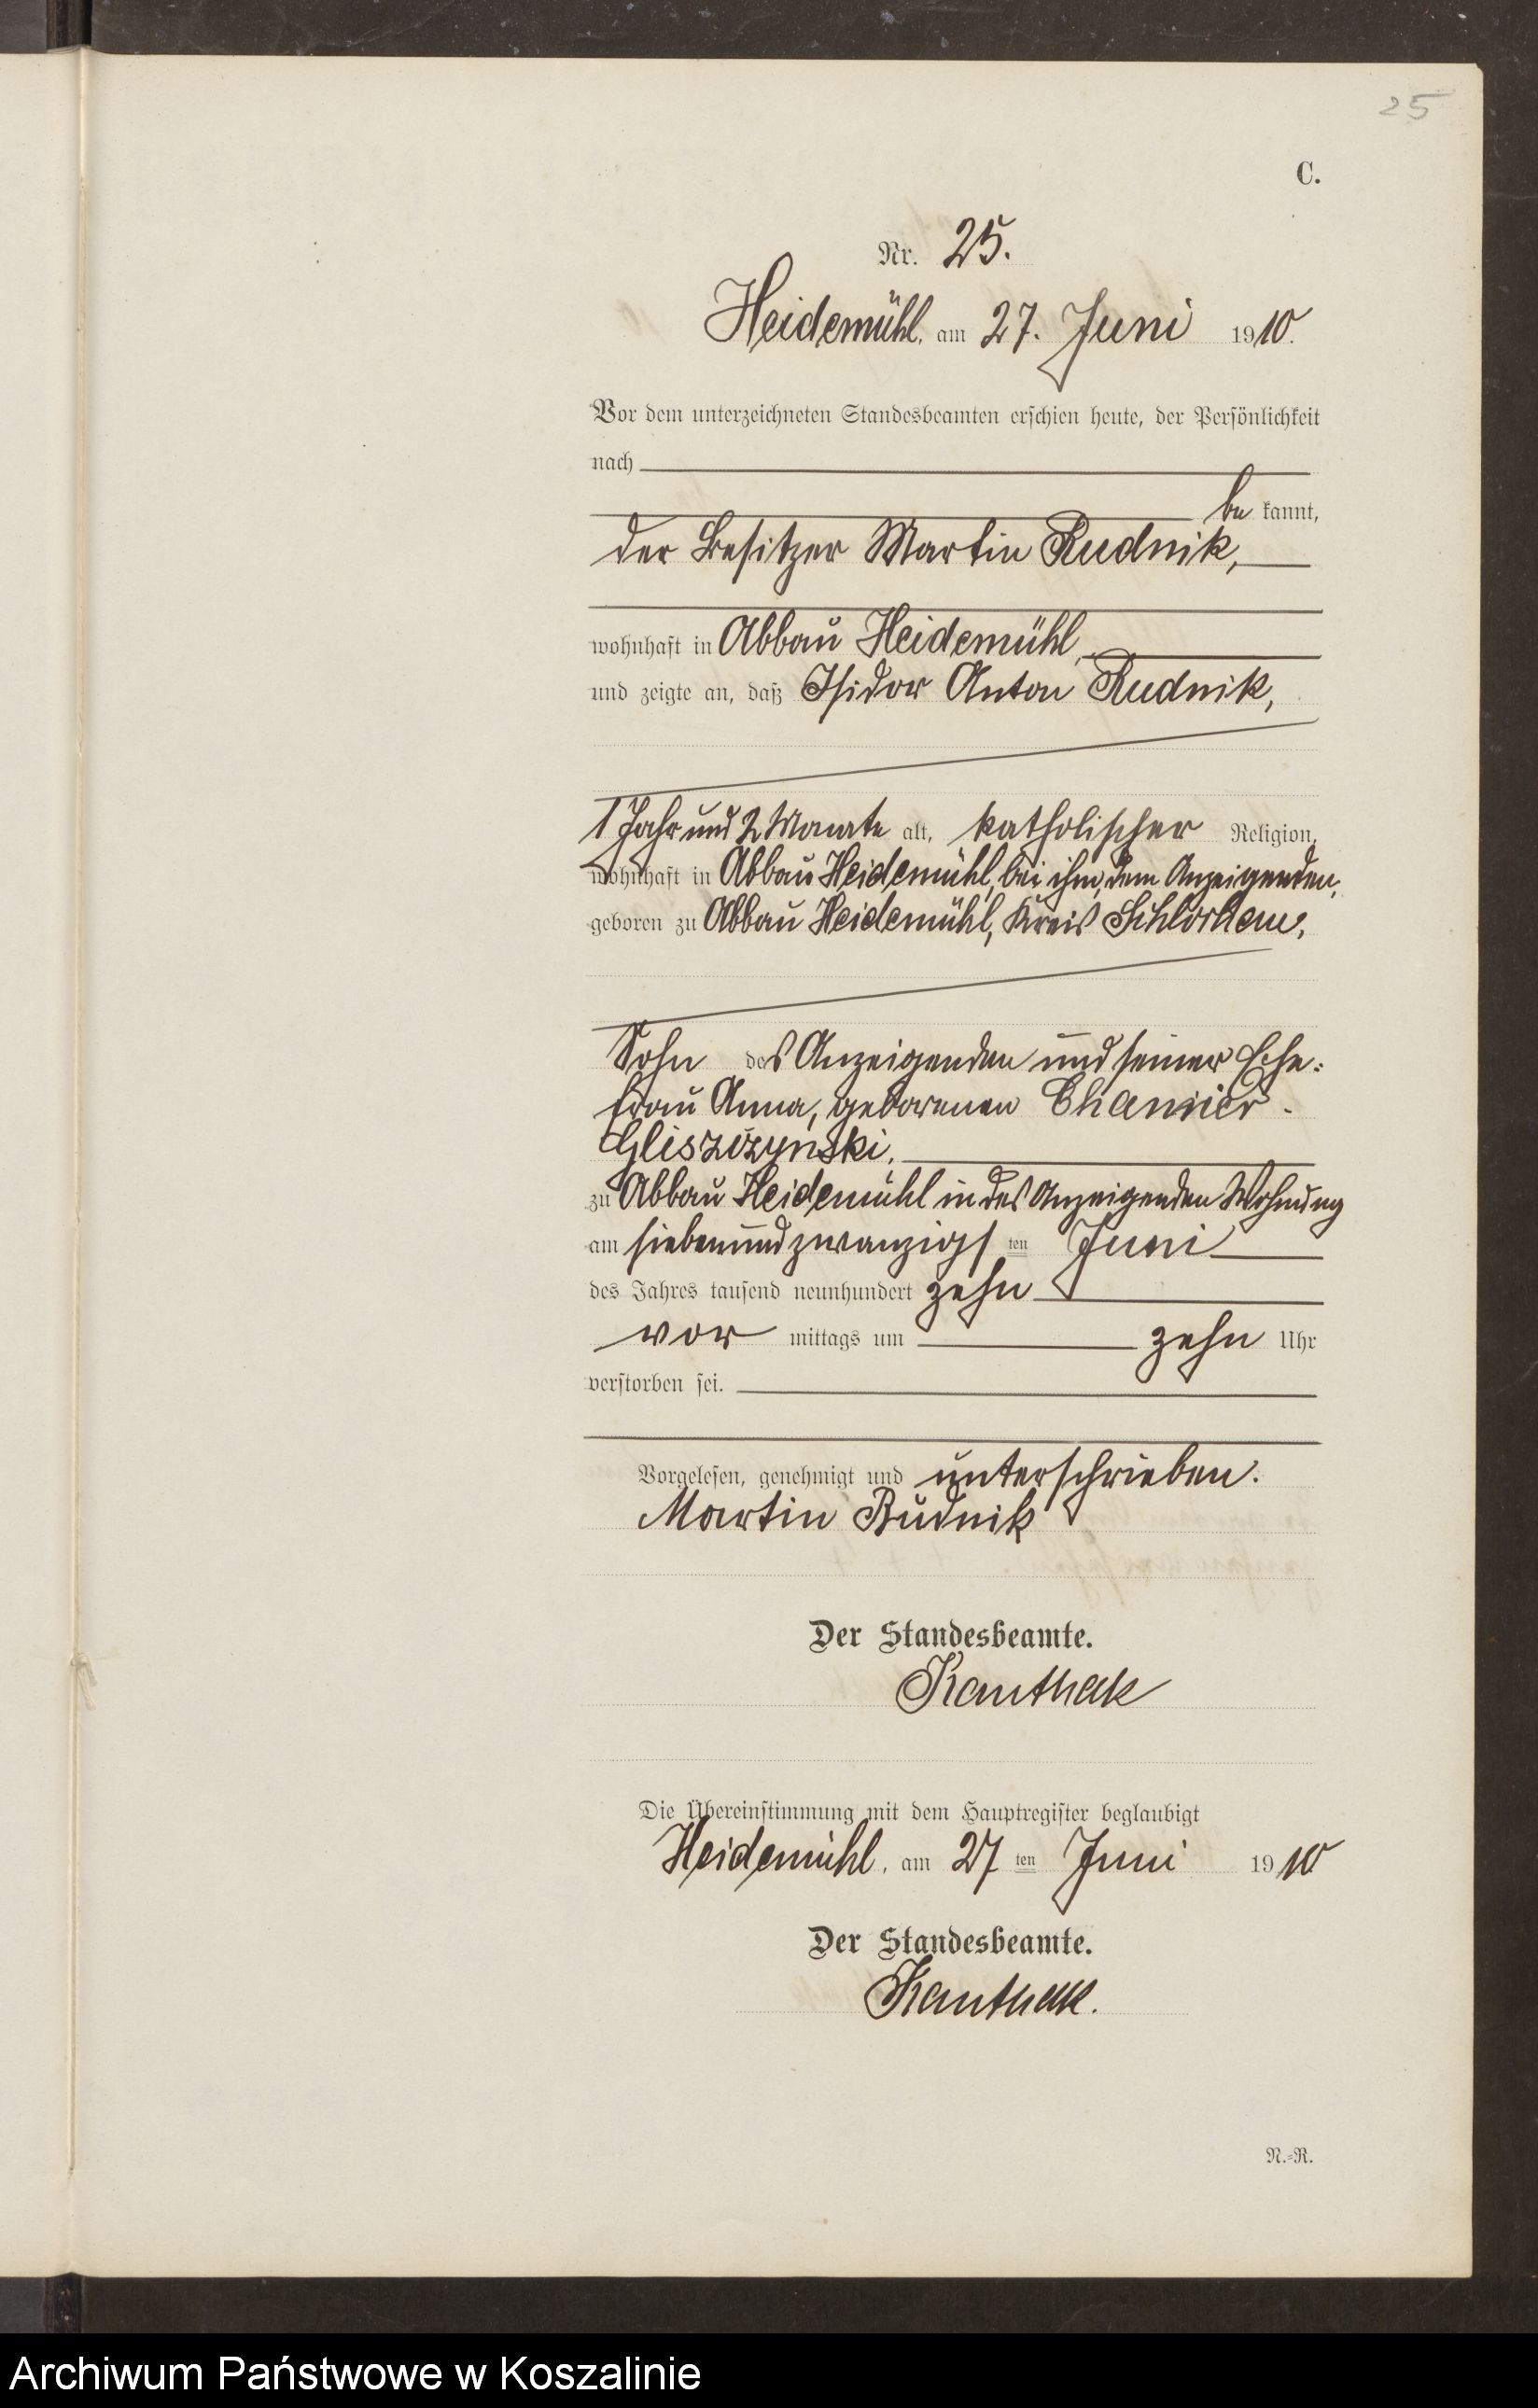 25
C.
Nr. 25.
Heidemühl, am 27. Juni 1910.
Vor dem unterzeichneten Standesbeamten erschien heute, der Persönlichkeit
nach
be kannt,
der Besitzer Martin Rudnik,
wohnhaft in Abbau Heidemühl,
und zeigte an, daß Isidor Anton Rudnik,
1 Jahr und 2 Monate alt, katholischer Religion,
wohnhaft in Abbau Heidemühl, bei ihm, dem Anzeigenden,
geboren zu Abbau Heidemühl, Kreis Schlochau,
Sohn des Anzeigenden und seiner Ehe-
frau Anna, geborenen Chamier-
Gliszczynski,
zu Abbau Heidemühl in des Anzeigenden Wohnung
am siebenundzwanzigs ten Juni
des Jahres tausend neunhundert zehn
vor mittags um zehn Uhr
verstorben sei.
Vorgelesen, genehmigt und unterschrieben.
Martin Rudnik
Der Standesbeamte.
Kanthak
Die Übereinstimmung mit dem Hauptregister beglaubigt
Heidemühl, am 27 ten Juni 1910
Der Standesbeamte.
Kanthak.
N.=R.
Archiwum Państwowe w Koszalinie